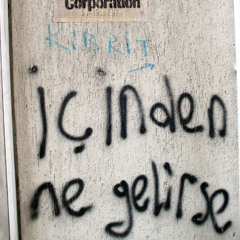 Corporation
KIBRIT
içinden
ne gelirse